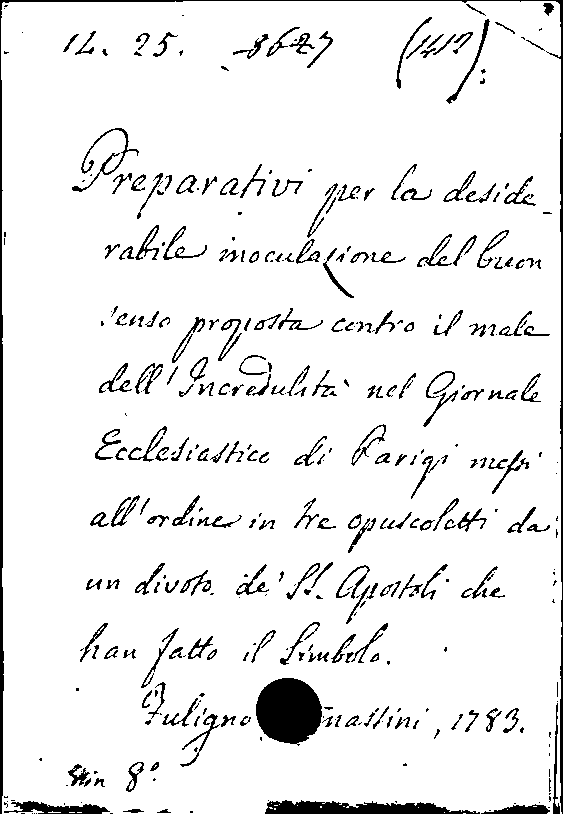 14. 25. 8627 (1412):
Preparativi per la deside-
rabile inoculazione del buon
senso proposta contro il male
dell'Incredulità nel Giornale
Ecclesiastico di Parigi messi
all'ordine in tre opuscoletti da
un divoto de' SS. Apostoli che
han fatto il Simbolo.
Fuligno massini, 1783.
in 8º.